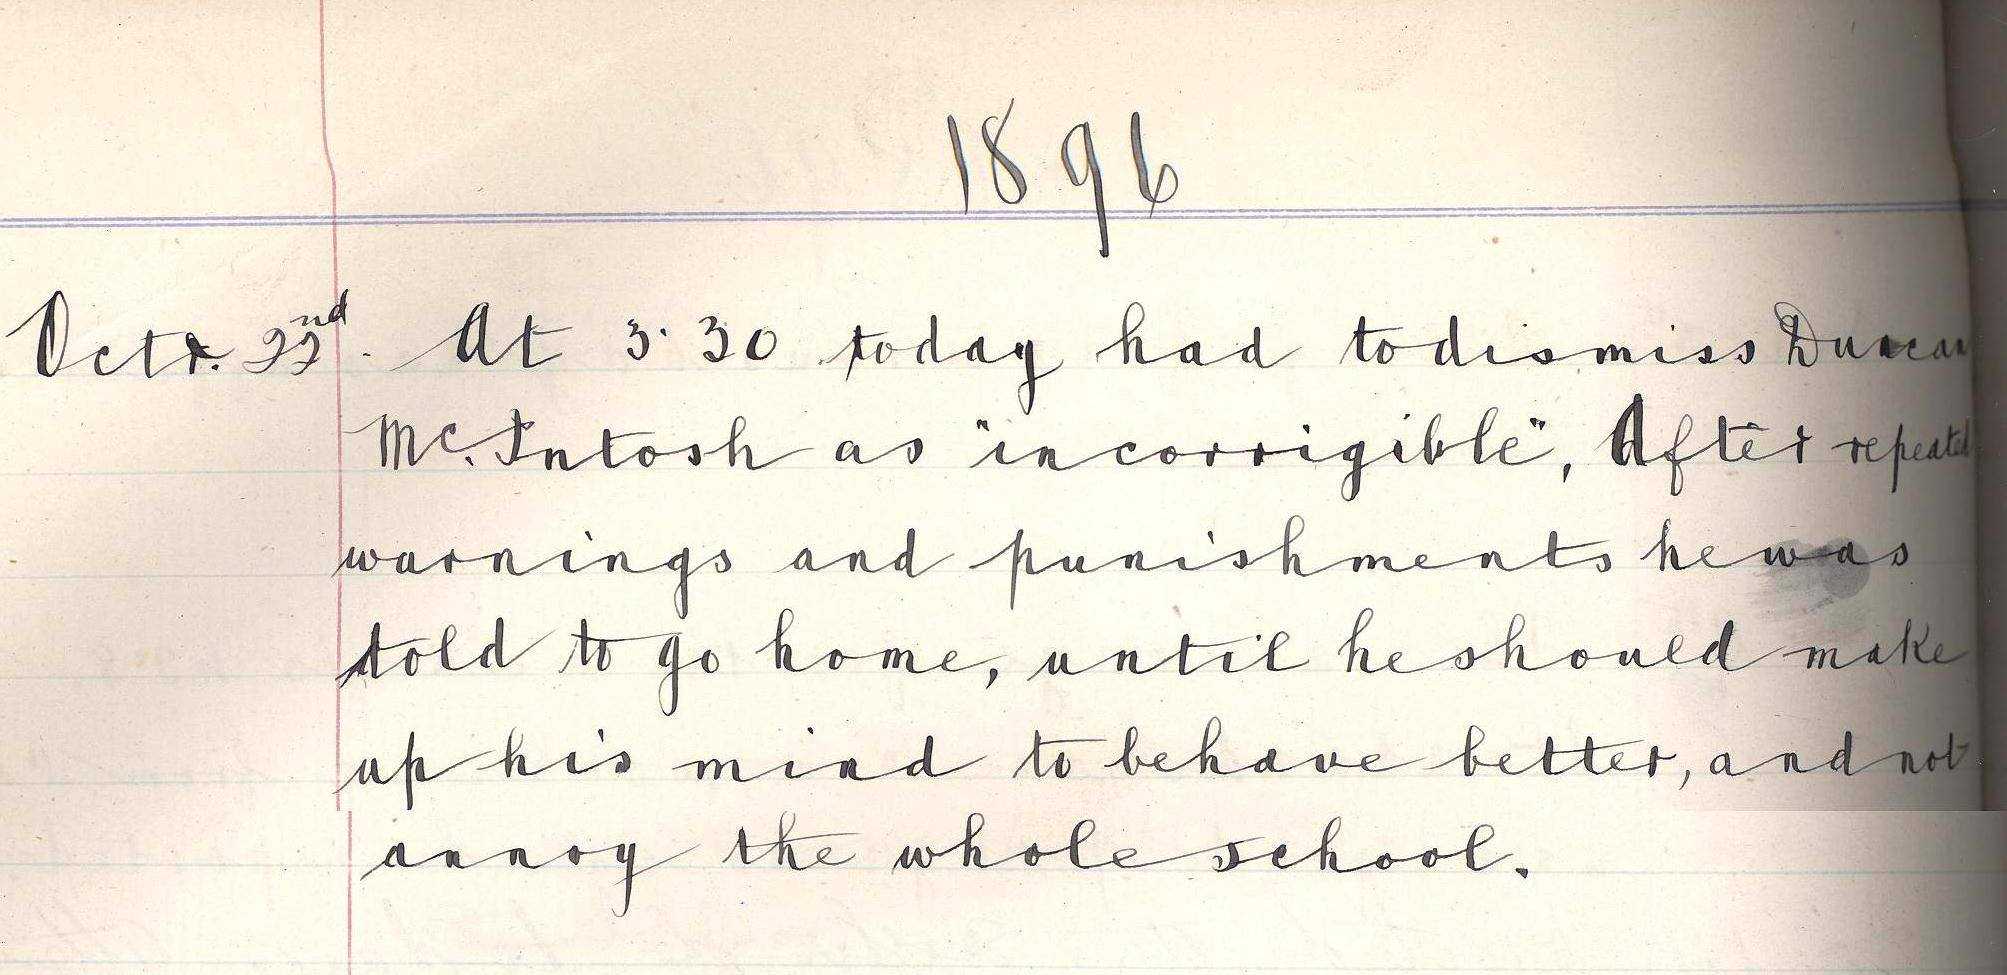 1896
Octr. 22nd. At 3.30 today had to dismiss Duncan
Mc. Intosh as "incorrigible", After repeated
warnings and punishments he was
told to go home, until he should make
up his mind to behave better, and not
annoy the whole school.